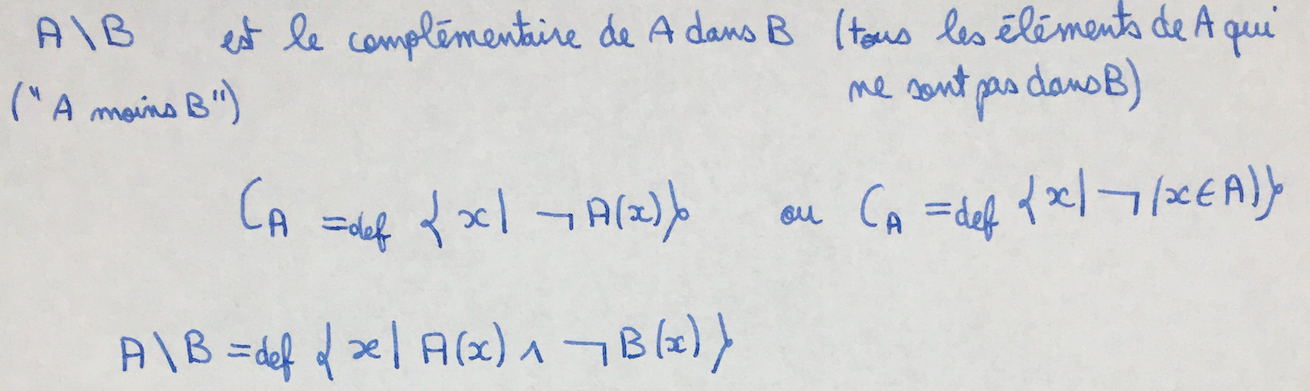 A\B est le complémentaire de A dans B (tous les éléments de A qui
("A moins B") ne sont pas dans B)
C_A =def {x| ¬A(x)} ou C_A =def {x| ¬(x∈A)}
A\B =def {x| A(x) ∧ ¬B(x)}